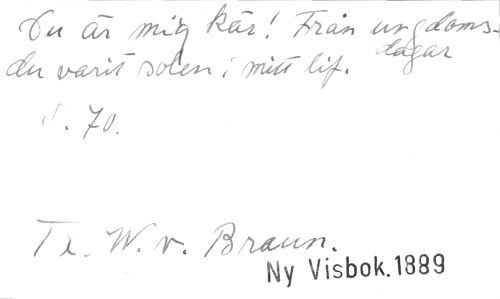 Du är mig kär! Från ungdoms-
dagar
du varit solen i mitt lif.
S. 70.
Tr. W. v. Braun.
Ny Visbok. 1889